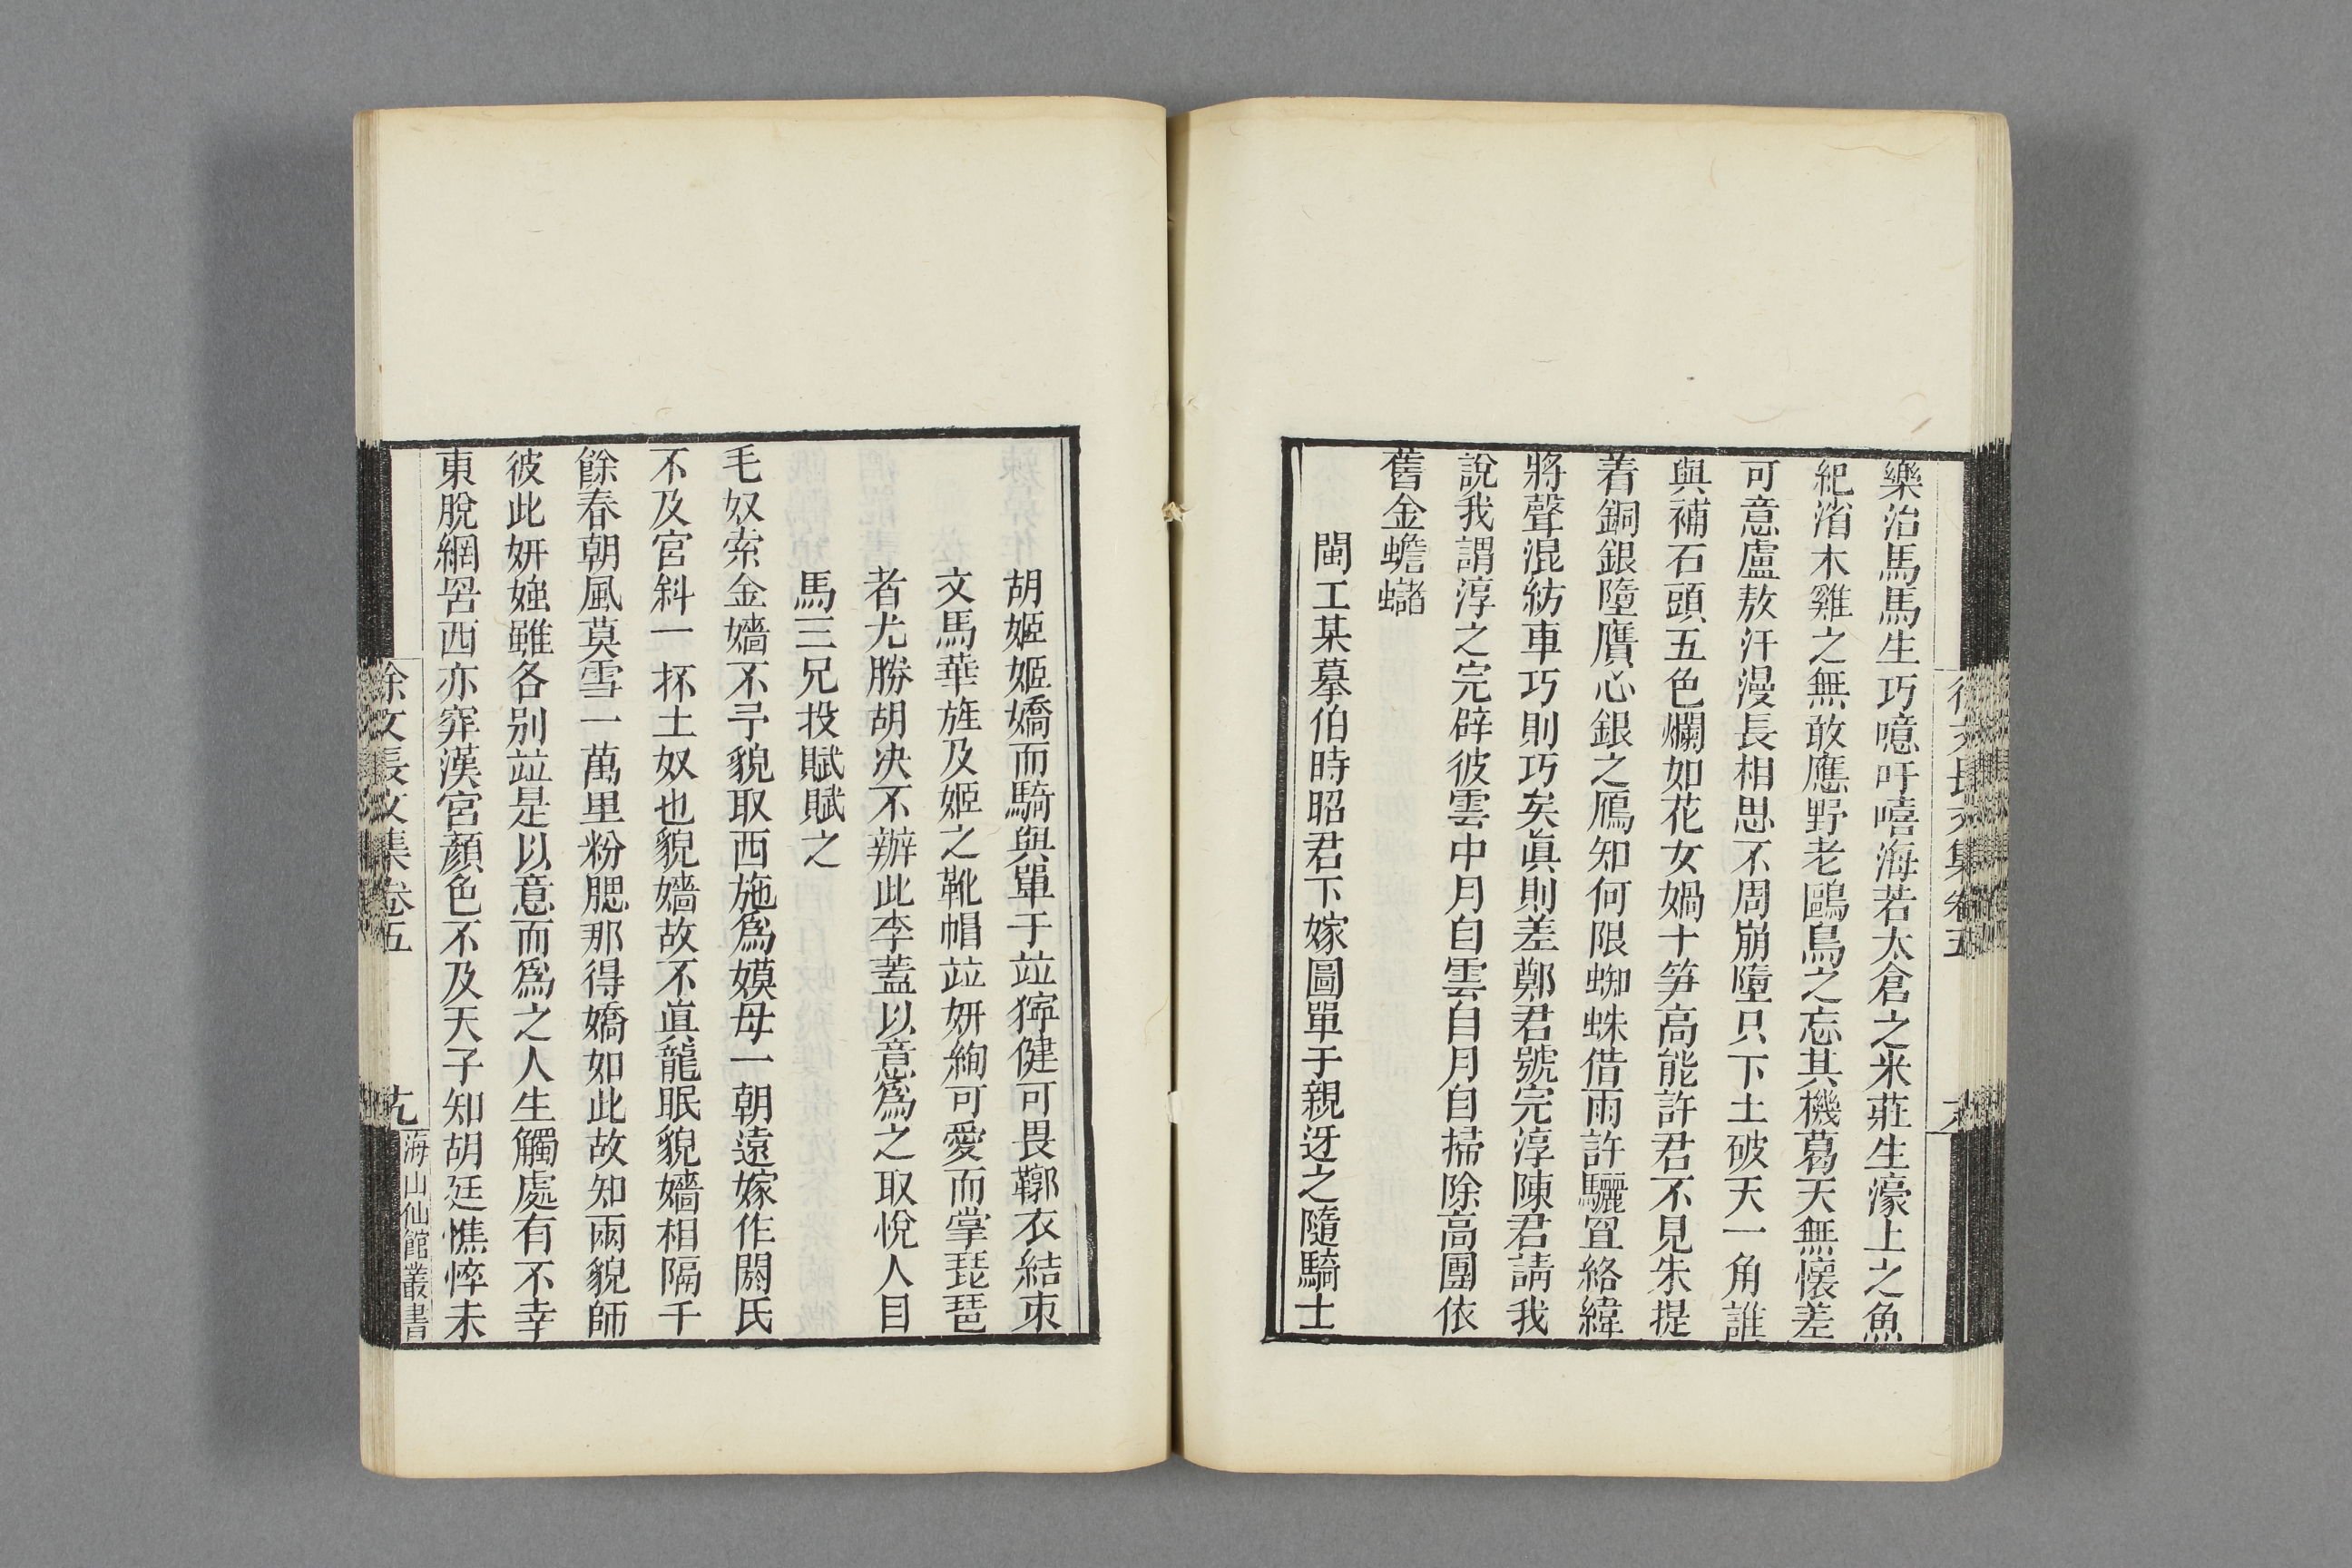 樂治馬馬生巧噫吁嘻海若太倉之米莊生濠上之魚
紀渻木雞之無敢應野老鷗鳥之忘其機葛天無懷差
可意盧敖汗漫長相思不周崩墮只下土破天一角誰
與補石頭五色爛如花女媧十笋高能許君不見朱提
着銅銀墮贋心銀之鴈知何限蜘蛛借雨許驪罝絡緯
將聲混紡車巧則巧矣眞則差鄭君號完淳陳君請我
說我謂淳之完辟彼雲中月自雲自月自掃除高團依
舊金蟾蠩
閩工某摹伯時昭君下嫁圖單于親迓之隨騎士
胡姬姬嬌而騎與單于竝獰健可畏鞹衣結束
文馬華旌及姬之靴帽竝妍絢可愛而掌琵琶
者尤勝胡决不辦此李蓋以意爲之取悅人目
馬三兄投賦賦之
毛奴索金嬙不予貌取西施爲嫫母一朝遠嫁作閼氏
不及宮斜一抔土奴也貌嬙故不眞龍眠貌嬙相隔千
餘春朝風莫雪一萬里粉腮那得嬌如此故知兩貌師
彼此妍媸雖各別竝是以意而爲之人生觸處有不幸
東脫網罟西亦穽漢宮顏色不及天子知胡廷憔悴未
徐文長文集卷五
海山仙館叢書